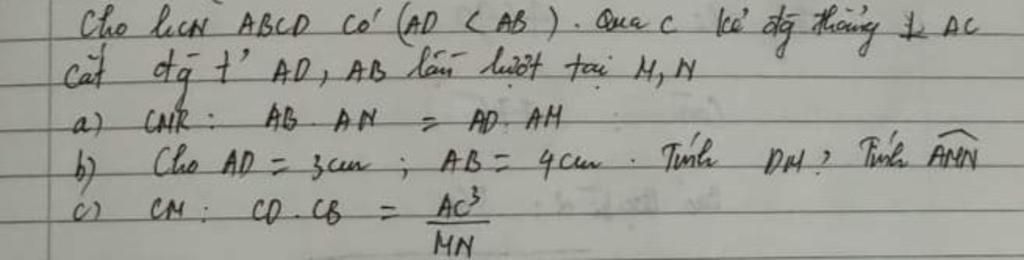 Cho hcN ABCD có (AD < AB). Qua C kẻ đg thẳng ⊥ AC
cắt đg t' AD, AB lần lượt tại M, N
a) CMR : AB . AN = AD . AM
b) Cho AD = 3cm ; AB = 4cm . Tính DM ? Tính \widehat{AMN}
c) CM : CD . CB = \frac{AC^3}{MN}